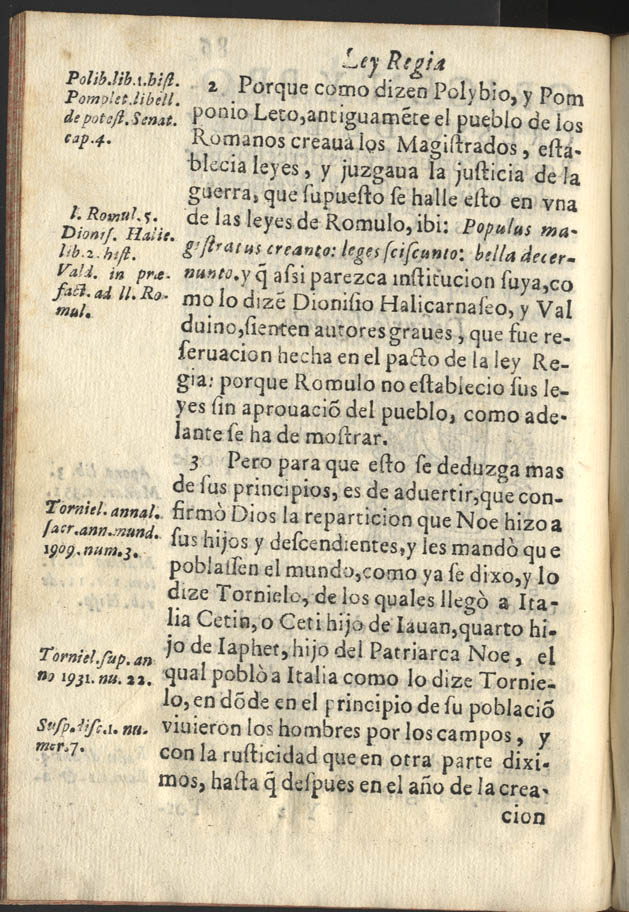 Ley Regia
Polib.lib.1.hist.
Pomp.let.libell.
de potest. Senat.
cap.4.
2 Porque como dizen Polybio, y Pom
ponio Leto,antiguamẽte el pueblo de los
Romanos creaua los Magistrados, esta-
blecia leyes, y juzgaua la justicia de la
guerra, que supuesto se halle esto en vna
de las leyes de Romulo, ibi: Populus ma-
gistratus creanto: leges sciscunto: bella decer-
nunto. y q̃ assi parezca institucion suya,co
mo lo dizẽ Dionisio Halicarnaseo, y Val
duino,sienten autores graues, que fue re-
seruacion hecha en el pacto de la ley Re-
gia: porque Romulo no establecio sus le-
yes sin aprouaciõ del pueblo, como ade-
lante se ha de mostrar.
l. Romul.5.
Dionis. Halic.
lib.2.hist.
Vald. in præ-
fact. ad ll. Ro-
mul.
3 Pero para que esto se deduzga mas
de sus principios, es de aduertir,que con-
firmò Dios la reparticion que Noe hizo a
sus hijos y descendientes,y les mandò que
poblassen el mundo,como ya se dixo,y lo
dize Tornielo, de los quales llegò a Ita-
lia Cetin, o Ceti hijo de Iauan,quarto hi-
jo de Iaphet,hijo del Patriarca Noe, el
qual poblò a Italia como lo dize Tornie-
lo, en dõde en el principio de su poblaciõ
viuieron los hombres por los campos, y
con la rusticidad que en otra parte dixi-
mos, hasta q̃ despues en el año de la crea-
Torniel. annal.
sacr.ann.mund.
1909.num.3.
Torniel.sup. an
no 1931. nu. 22.
Susp.disc.1. nu-
mer.7.
cion